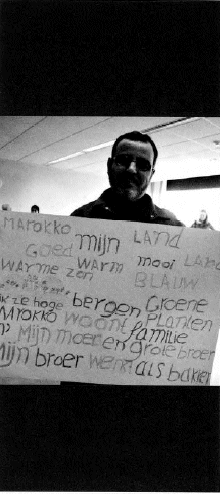 MAROKKO mijn LAND
Goed warm mooi Land
warme zon BLAUW
ik ze hoge bergen Groene
MAROKKO woont Planten
familie
Mijn moer en grote broer
Mijn broer werkt als bakker